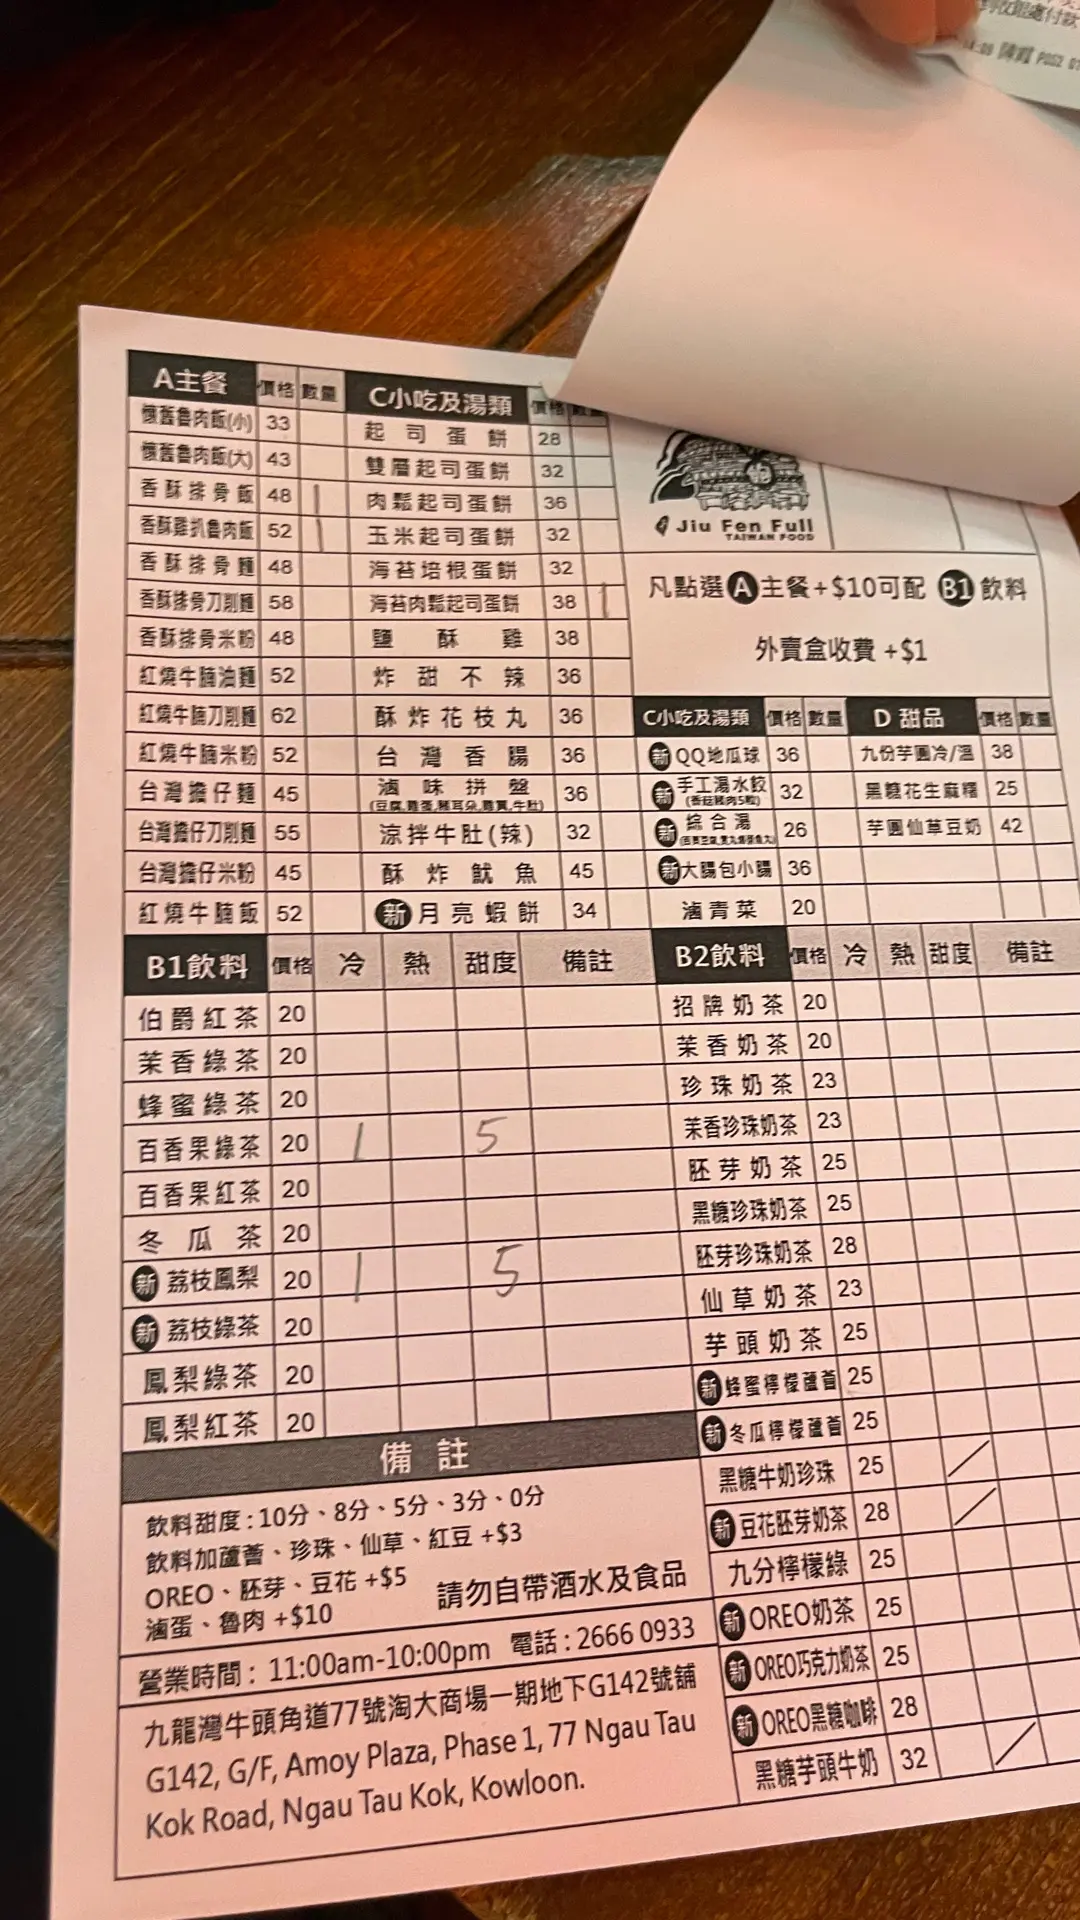 到收銀處付款
POS2
A主餐 價格 數量
懷舊魯肉飯(小) 33
懷舊魯肉飯(大) 43
香酥排骨飯 48 1
香酥雞扒魯肉飯 52 1
香酥排骨麵 48
香酥排骨刀削麵 58
香酥排骨米粉 48
紅燒牛腩油麵 52
紅燒牛腩刀削麵 62
紅燒牛腩米粉 52
台灣擔仔麵 45
台灣擔仔刀削麵 55
台灣擔仔米粉 45
紅燒牛腩飯 52
C小吃及湯類 價格 數量
起司蛋餅 28
雙層起司蛋餅 32
肉鬆起司蛋餅 36
玉米起司蛋餅 32
海苔培根蛋餅 32
海苔肉鬆起司蛋餅 38 1
鹽酥雞 38
炸甜不辣 36
酥炸花枝丸 36
台灣香腸 36
滷味拼盤 36
(豆腐,雞蛋,豬耳朵,雞胗,牛肚)
涼拌牛肚(辣) 32
酥炸魷魚 45
新 月亮蝦餅 34
Jiu Fen Full
TAIWAN FOOD
凡點選A主餐+$10可配 B1飲料
外賣盒收費+$1
C小吃及湯類 價格 數量
新 QQ地瓜球 36
新 手工湯水餃 32
(香菇豬肉5粒)
新 綜合湯 26
新 大腸包小腸 36
滷青菜 20
D 甜品 價格 數量
九份芋圓冷/溫 38
黑糖花生麻糬 25
芋圓仙草豆奶 42
B1飲料 價格 冷 熱 甜度 備註
伯爵紅茶 20
茉香綠茶 20
蜂蜜綠茶 20
百香果綠茶 20 1 5
百香果紅茶 20
冬瓜茶 20
新 荔枝鳳梨 20 1 5
新 荔枝綠茶 20
鳳梨綠茶 20
鳳梨紅茶 20
B2飲料 價格 冷 熱 甜度 備註
招牌奶茶 20
茉香奶茶 20
珍珠奶茶 23
茉香珍珠奶茶 23
胚芽奶茶 25
黑糖珍珠奶茶 25
胚芽珍珠奶茶 28
仙草奶茶 23
芋頭奶茶 25
新 蜂蜜檸檬蘆薈 25
新 冬瓜檸檬蘆薈 25
黑糖牛奶珍珠 25
新 豆花胚芽奶茶 28
九分檸檬綠 25
新 OREO奶茶 25
新 OREO巧克力奶茶 25
新 OREO黑糖咖啡 28
黑糖芋頭牛奶 32
備註
飲料甜度:10分、8分、5分、3分、0分
飲料加蘆薈、珍珠、仙草、紅豆 +$3
OREO、胚芽、豆花 +$5
滷蛋、魯肉 +$10
請勿自帶酒水及食品
營業時間: 11:00am-10:00pm 電話:2666 0933
九龍灣牛頭角道77號淘大商場一期地下G142號舖
G142, G/F, Amoy Plaza, Phase 1, 77 Ngau Tau
Kok Road, Ngau Tau Kok, Kowloon.